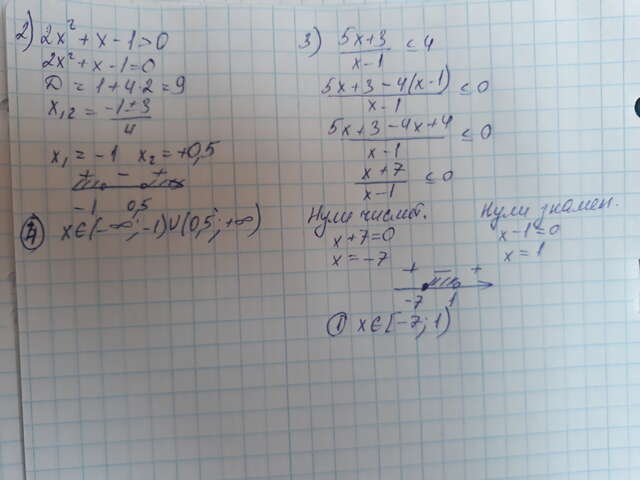 2) 2x² + x - 1 > 0
2x² + x - 1 = 0
D = 1 + 4·2 = 9
x₁,₂ = (-1 ± 3)/4
x₁ = -1 x₂ = +0,5
+ - +
-1 0,5
x∈(-∞; -1)∪(0,5; +∞)
3) (5x+3)/(x-1) ≤ 4
(5x+3-4(x-1))/(x-1) ≤ 0
(5x+3-4x+4)/(x-1) ≤ 0
(x+7)/(x-1) ≤ 0
Нули числит. Нули знамен.
x+7=0 x-1=0
x=-7 x=1
+ - +
-7 1
① x∈[-7; 1)